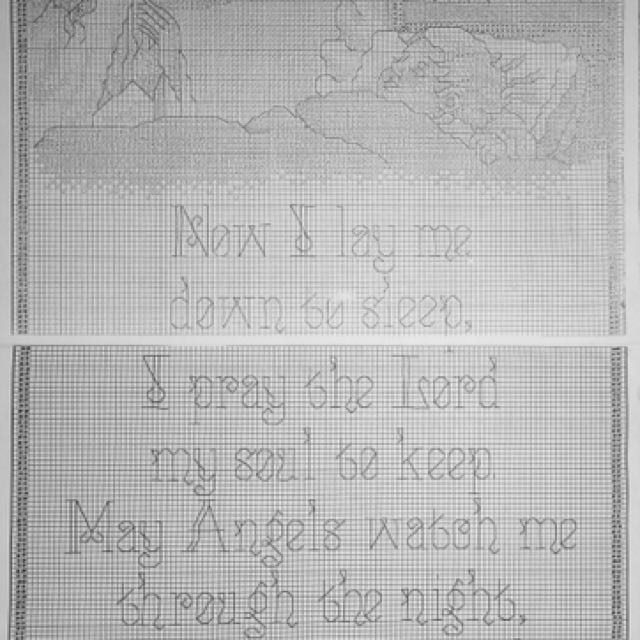 Now I lay me
down to sleep,
I pray the Lord
my soul to keep
May Angels watch me
through the night,